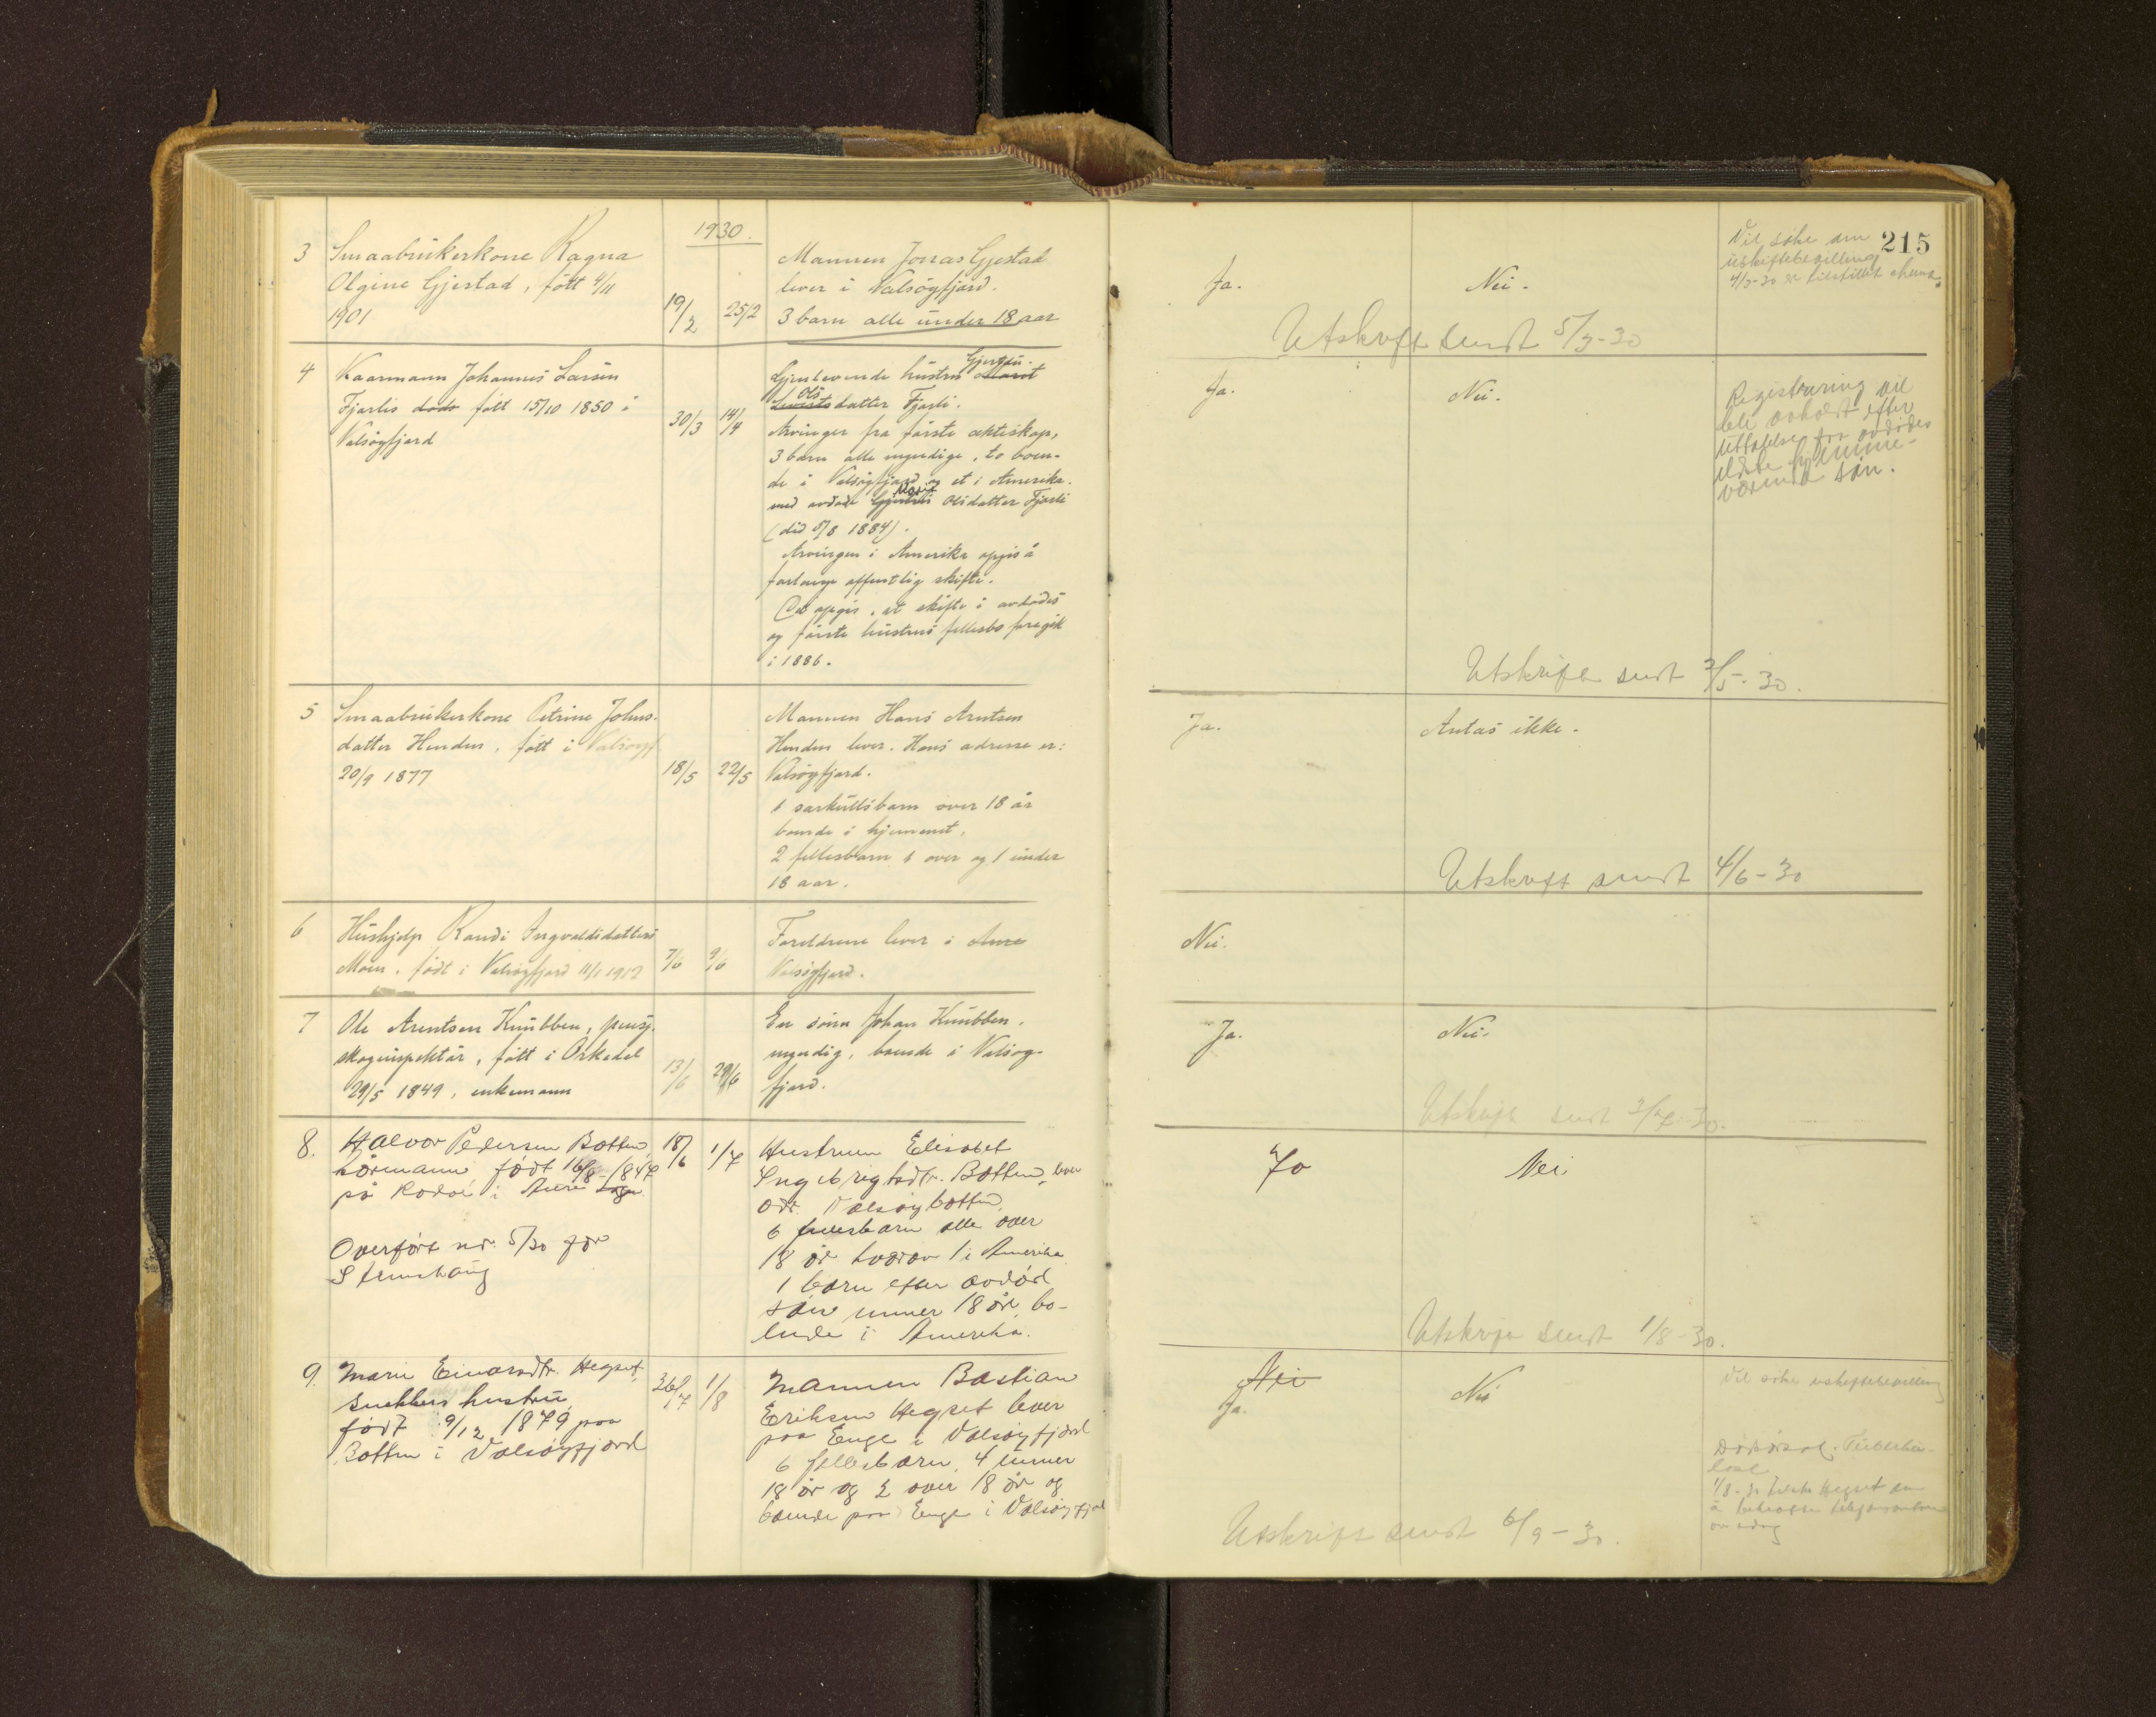 1930.
215
3 Smaabrukerkone Ragna
Olgine Gjestad, født 4/11
1901
19/2 25/2
Mannen Jonas Gjestad
lever i Valsøyfjord.
3 barn alle under 18 aar
Ja. Nei.
Vil søke om
uskiftebevilling
4/3-30 er tilstillet
Utskrift sendt 5/3-30
4 Kaarmann Johannes Larsen
Fjærlis døde født 15/10 1850 i
Valsøyfjord
30/3 14/4
Gjenlevende hustru Gjertru
Ols datter Fjærli.
Arvinger fra første ækteskap,
3 barn alle myndige, to boen-
de i Valsøyfjord og et i Amerika.
med avdøde Marit Olsdatter Fjærli
(død 5/8 1884).
Arvingen i Amerika opgis å
forlange offentlig skifte.
Det opgis, at skifte i avdødes
og første hustrus fellesbo foregik
i 1886.
Ja. Nei.
Registrering vil
bli avholdt efter
avdødes
eldste hjemme-
værende søn.
Utskrift sendt 2/5-30.
5 Smaabrukerkone Petrine Johns-
datter Henden, født i Valsøyf
20/9 1877
18/5 22/5
Mannen Hans Arntsen
Henden lever. Hans adresse er:
Valsøyfjord.
1 særkullsbarn over 18 år
boende i hjemmet.
2 fellesbarn 1 over og 1 under
18 aar.
Ja. Antas ikke.
Utskrift sendt 4/6-30
6 Hushjelp Randi Ingvaldsdatter
Moen, født i Valsøyfjord 11/1 1912
7/6 9/6
Foreldrene lever i Aure
Valsøyfjord.
Nei.
7 Ole Arentsen Knubben, pensj.
skoginspektør, født i Orkedal
29/5 1849, enkemann
13/6 29/6
En sønn Johan Knubben,
myndig, boende i Valsøy-
fjord.
Ja. Nei.
Utskrift sendt 2/7-30.
8. Halvor Pedersen Botten
kårmann født 16/8-1847
på Rodal i Aure sogn
18/6 1/7
Overført nr. 5/30 for
Stemshaug
Hustruen Elisabet
Ingebrigtsdtr. Botten, lever
adr. Valsøybotten.
6 fellesbarn alle over
18 år hvorav 1 i Amerika
1 barn efter avdød
søn unner 18 år, bo-
ende i Amerika.
Ja Nei
Utskrift sendt 1/8-30.
9. Marie Einarsdtr. Hegset,
snekkers hustru
født 9/12 1879 paa
Botten i Valsøyfjord
26/7 1/8
Mannen Bastian
Eriksen Hegset lever
paa Enge i Valsøyfjord
6 fellesbarn, 4 unner
18 år og 2 over 18 år og
boende paa Enge i Valsøyfjord
Nei
Ja. Nei
Vil søke uskiftebevilling
Dødsårsak. Tuberku-
lose
1/8-30 Hegset om
å
av idag
Utskrift sendt 6/9-30.